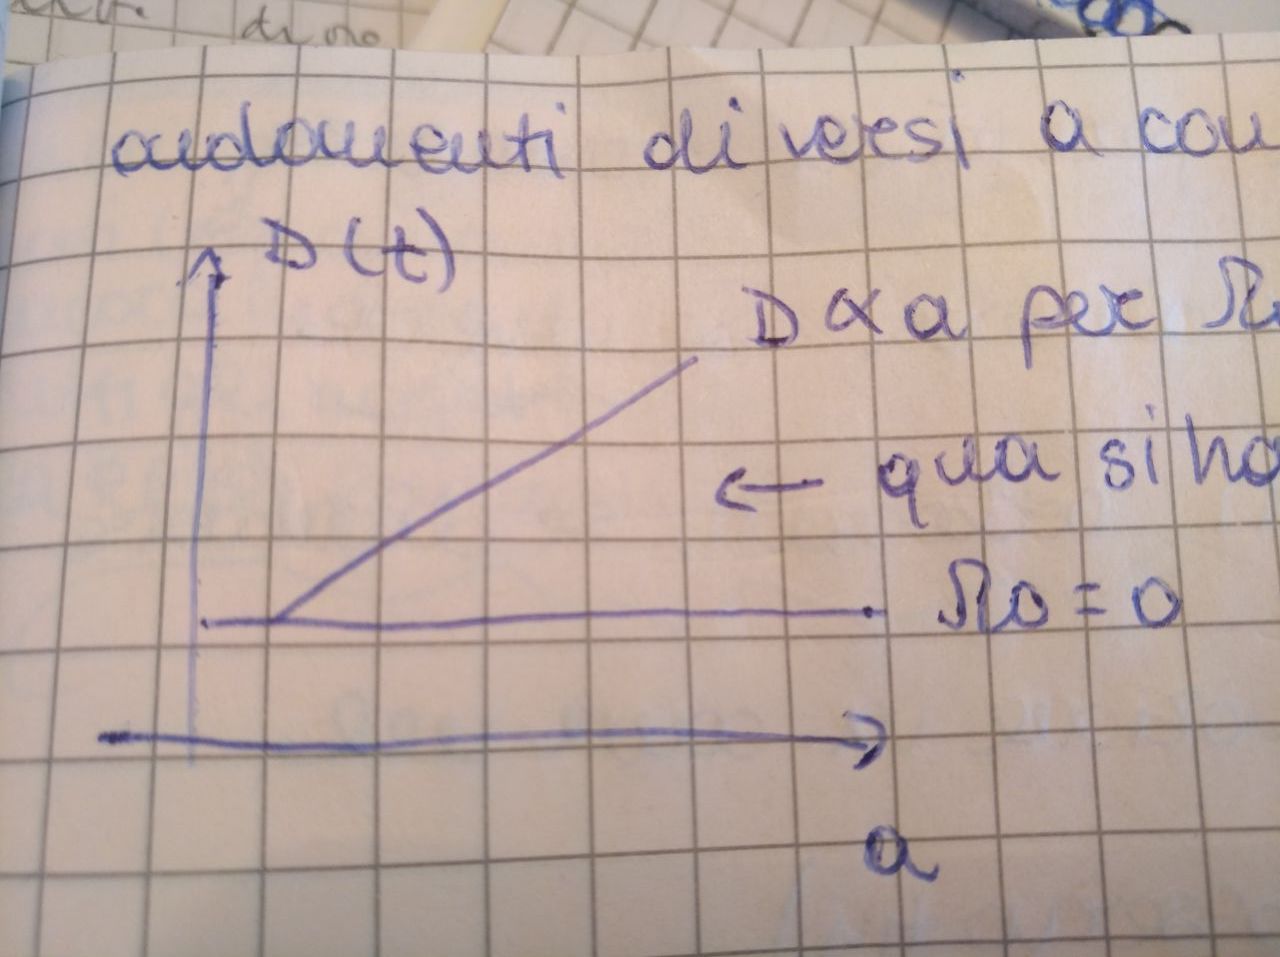 di no
andamenti diversi a con
D(t)
D ∝ a per Ω
qua si ha
Ω0 = 0
a